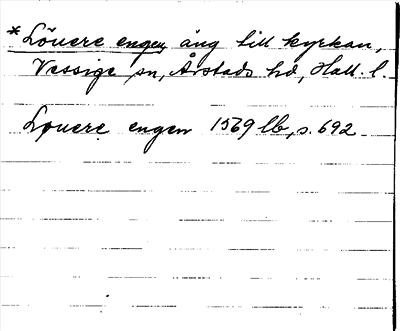 *Lövere engen, äng till kyrkan,
Vessige sn, Årstads hd, Hall. l.
Løuere engen 1569 lb, s. 692